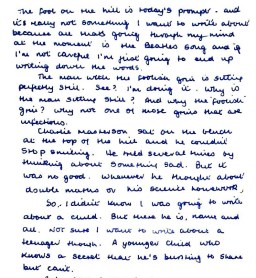 The fool on the hill is today's prompt - and
it's really not something I want to write about
because all that's going through my mind
at the moment is the Beatles song and if
I'm not careful I'm just going to end up
writing down the words.
The man with the foolish grin is sitting
perfectly still. See? I'm doing it. Why is
the man sitting still? And why the foolish
grin? Why not one of those grins that are
infectious.
Charlie Masterson sat on the bench
at the top of the hill and he couldn't
stop smiling. He tried several times by
thinking about something sad. But it
was no good. Whenever he thought about
double maths or his science homework,
So, I didn't know I was going to write
about a child. But there he is, name and
all. Not sure I want to write about a
teenager though. A younger child who
knows a secret that he's bursting to share
but can't.